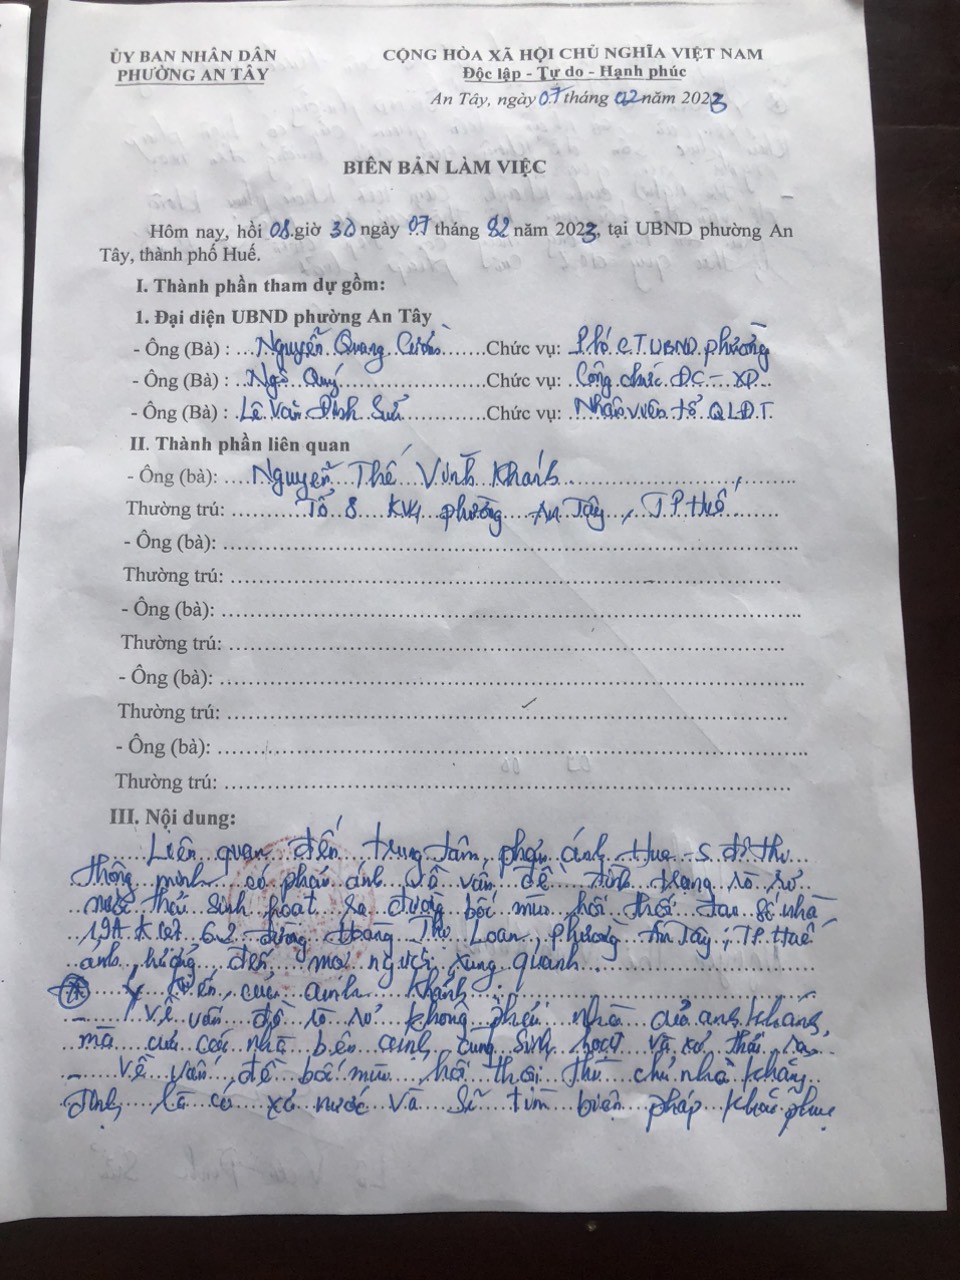 ỦY BAN NHÂN DÂN
PHƯỜNG AN TÂY
CỘNG HÒA XÃ HỘI CHỦ NGHĨA VIỆT NAM
Độc lập - Tự do - Hạnh phúc
An Tây, ngày 07 tháng 02 năm 2023
BIÊN BẢN LÀM VIỆC
Hôm nay, hồi 08 giờ 30 ngày 07 tháng 02 năm 2023, tại UBND phường An
Tây, thành phố Huế.
I. Thành phần tham dự gồm:
1. Đại diện UBND phường An Tây
- Ông (Bà) : Nguyễn Quang Cường Chức vụ: Phó CT UBND phường
- Ông (Bà) : Ngô Quý Chức vụ: Công chức ĐC - XD
- Ông (Bà) : Lê Văn Đình Chức vụ: Nhân viên tổ QLĐT.
II. Thành phần liên quan
- Ông (bà): Nguyễn Thế Vĩnh Khánh
Thường trú: Tổ 8 KV4 phường An Tây, TP Huế
- Ông (bà):
Thường trú:
- Ông (bà):
Thường trú:
- Ông (bà):
Thường trú:
- Ông (bà):
Thường trú:
III. Nội dung:
Liên quan đến trung tâm phản ánh Hue-S đô thị
thông minh có phản ánh về vấn đề tình trạng rò rỉ
nước thải sinh hoạt ra đường bốc mùi hôi thối tại số nhà
19A kiệt 62 đường Hoàng Thị Loan, phường An Tây, TP Huế
ảnh hưởng đến mọi người xung quanh.
* Ý kiến của anh Khánh:
- Về vấn đề rò rỉ không phải nhà của anh Khánh,
mà của các nhà bên cạnh cùng sinh hoạt và xả thải ra
- Về vấn đề bốc mùi hôi thối thì chủ nhà khẳng
định là có xả nước và sẽ tìm biện pháp khắc phục